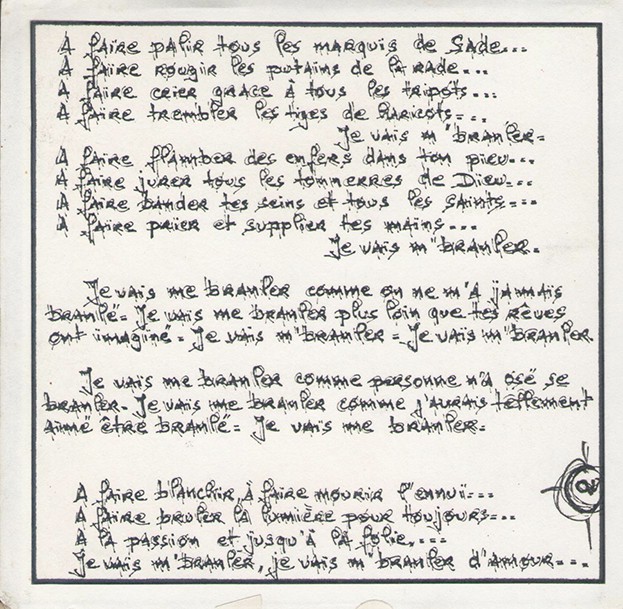 A faire pâlir tous les marquis de Sade...
A faire rougir les putains de la rade...
A faire crier grace à tous les tripots...
A faire trembler les tiges de haricots...
Je vais m'branler.
A faire flamber des enfers dans ton pieu...
A faire jurer tous les tonnerres de Dieu...
A faire bander tes seins et tous les saints...
A faire prier et supplier tes mains...
Je vais m'branler.
Je vais me branler comme on ne m'a jamais
branlé. Je vais me branler plus loin que tes rêves
ont imaginé. Je vais m'branler. Je vais m'branler
Je vais me branler comme personne n'a osé se
branler. Je vais me branler comme j'aurais tellement
aimé être branlé. Je vais me branler.
A faire blanchir, à faire mourir l'ennui...
A faire bruler la lumière pour toujours...
A la passion et jusqu'à la folie....
Je vais m'branler, je vais m'branler d'amour....
2